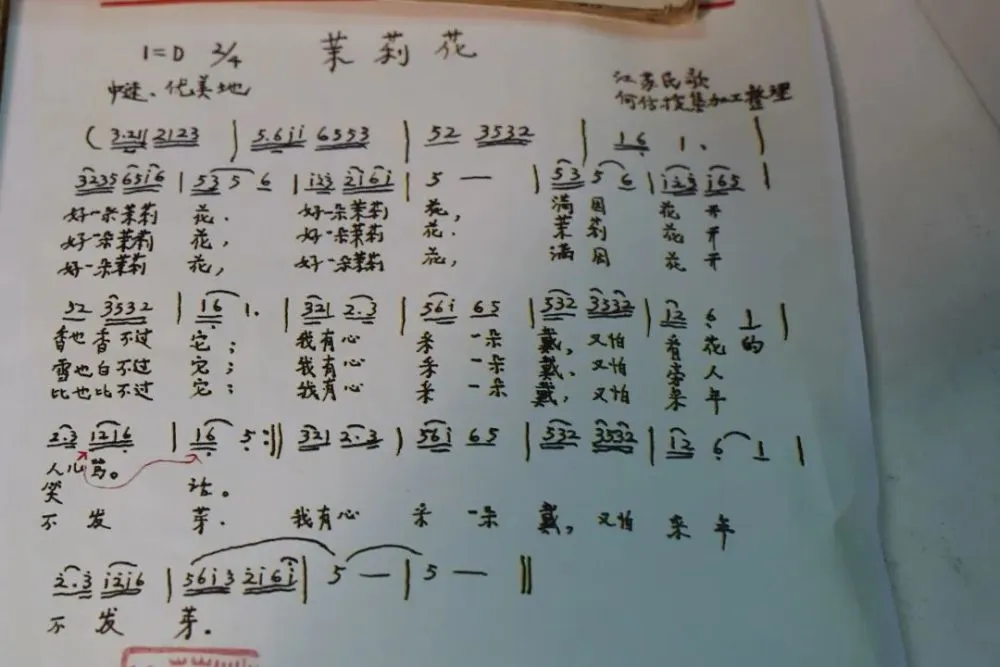 茉莉花
1=D 2/4
中速、优美地
江苏民歌
何仿搜集加工整理
( 3.21 2123 | 5.6ii 6553 | 52 3532 | 16 1. |
3235 65i6 | 53 5 6 | i23 2i6i | 5 — | 53 5 6 | i23 i65 |
好一朵茉莉 花. 好一朵茉莉 花, 满园 花开
好一朵茉莉 花, 好一朵茉莉 花. 茉莉 花开
好一朵茉莉 花, 好一朵茉莉 花, 满园 花开
52 3532 | 16 1. | 321 2.3 | 56i 65 | 532 3532 | 12 6 1 |
香也香不过 它; 我有心 采一朵 戴, 又怕 看花的
雪也白不过 它; 我有心 采一朵 戴, 又怕 旁人
比也比不过 它; 我有心 采一朵 戴, 又怕 来年
2.3 1216 | 16 5 :‖ 321 2.3 | 56i 65 | 532 3532 | 12 6 1 |
人儿骂。
笑 话。
不发 芽. 我有心 采一朵 戴, 又怕 来年
2.3 i2i6 | 56i3 2i6i | 5 — | 5 — ‖
不发 芽.